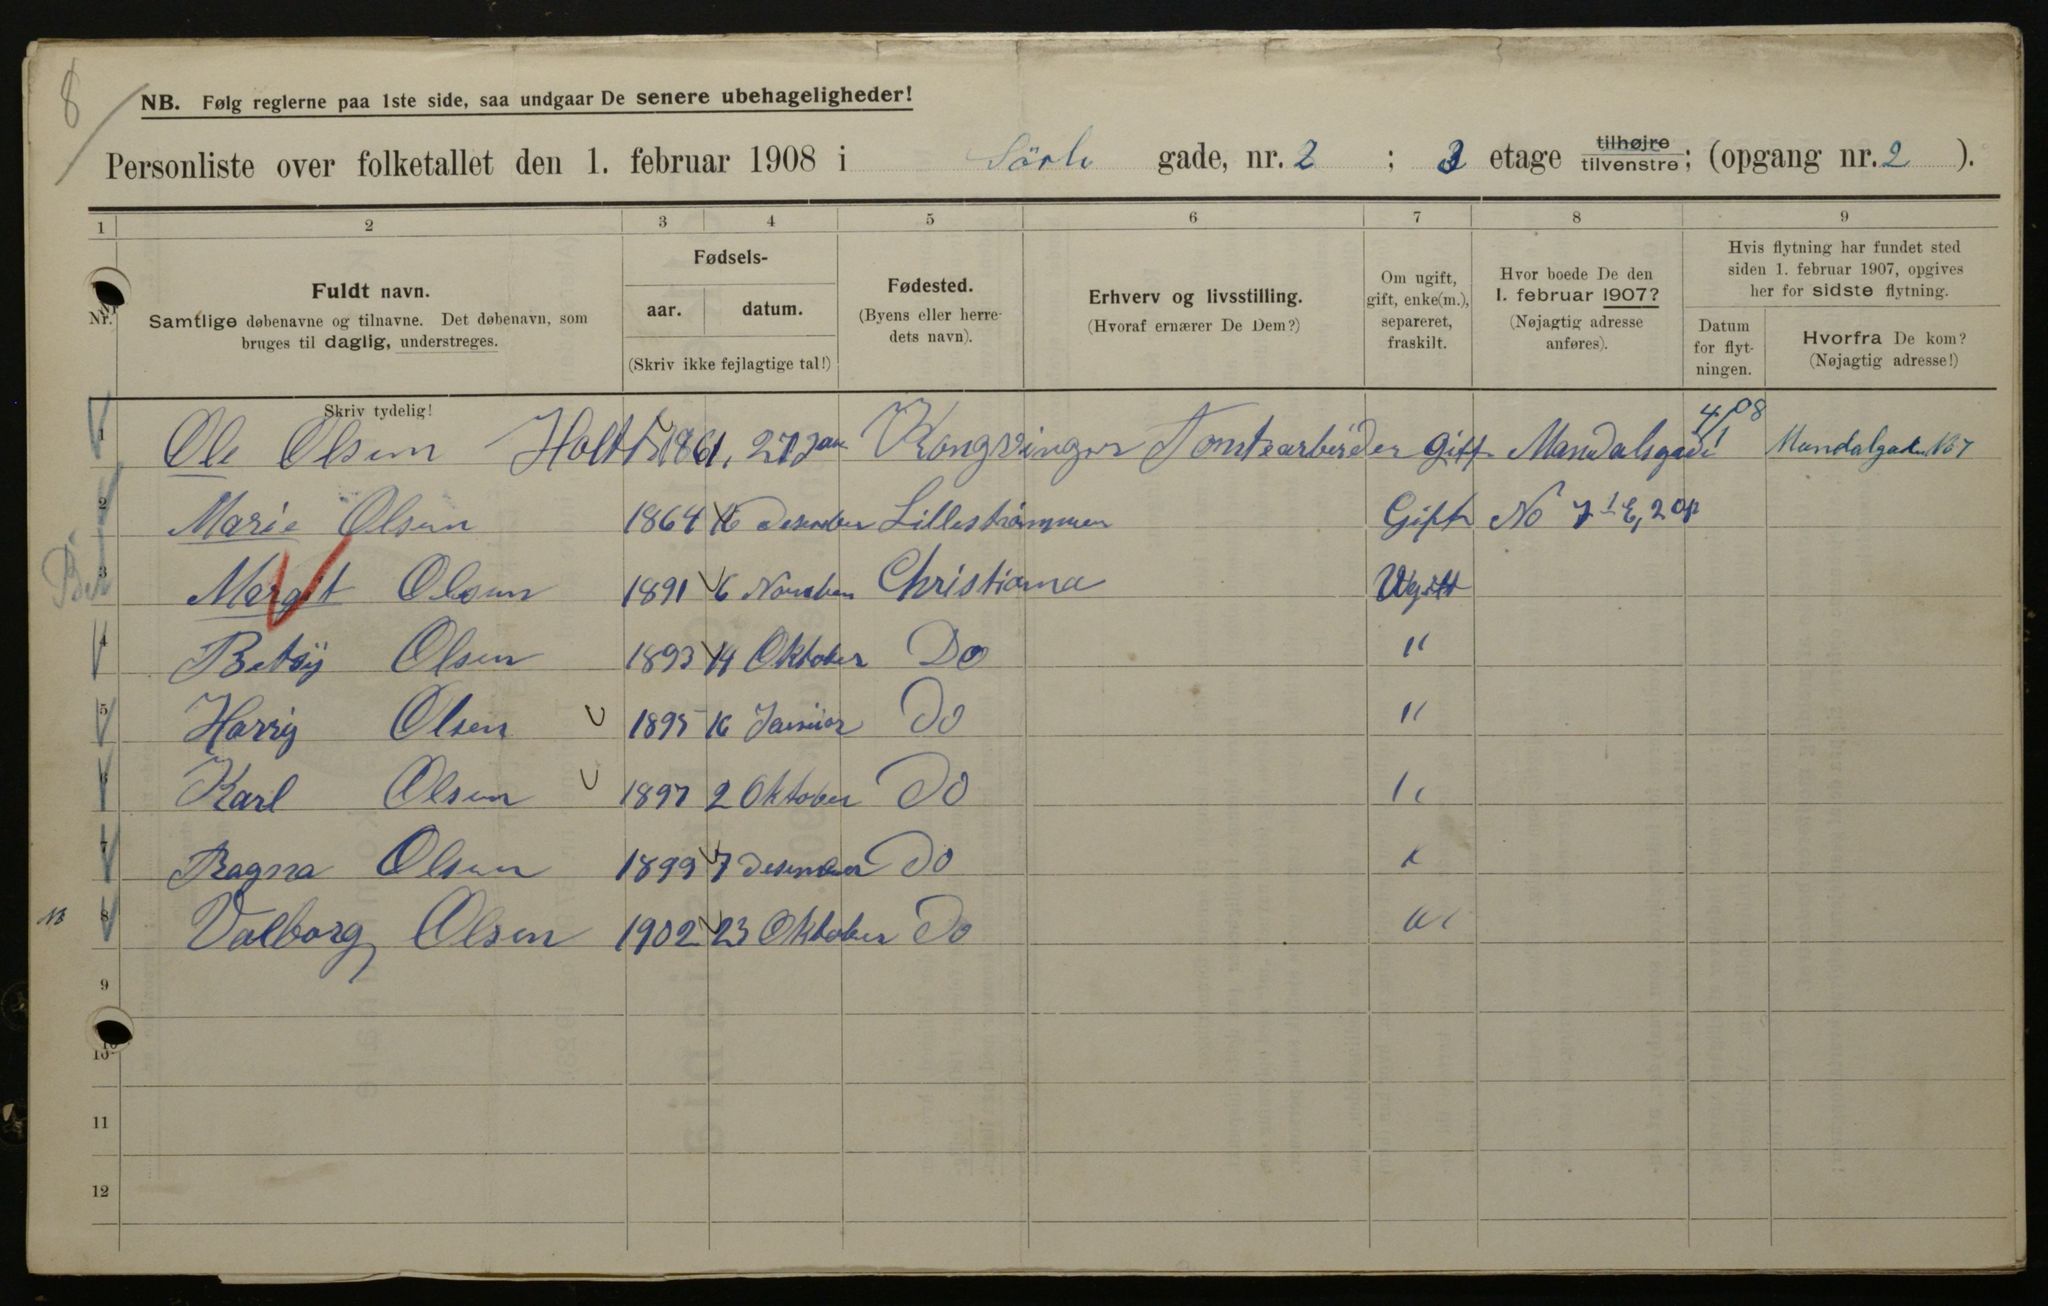 8
NB. Følg reglerne paa 1ste side, saa undgaar De senere ubehageligheder!
Personliste over folketallet den 1. februar 1908 i Sörli gade, nr. 2 ; 3 etage tilhøjre tilvenstre; (opgang nr. 2 ).
1 2 3 4 5 6 7 8 9
Nr.
Fuldt navn.
Samtlige døbenavne og tilnavne. Det døbenavn, som
bruges til daglig, understreges.
Skriv tydelig!
Fødsels-
aar. datum.
(Skriv ikke fejlagtige tal!)
Fødested.
(Byens eller herre-
dets navn).
Erhverv og livsstilling.
(Hvoraf ernærer De Dem?)
Om ugift,
gift, enke(m.),
separeret,
fraskilt.
Hvor boede De den
1. februar 1907?
(Nøjagtig adresse
anføres).
Hvis flytning har fundet sted
siden 1. februar 1907, opgives
her for sidste flytning.
Datum
for flyt-
ningen.
Hvorfra De kom?
(Nøjagtig adresse!)
1 Ole Olsen Holth 1861, 27 Jan Kongsvinger Tomtearbeider gift Mandalsgade 4/1 08 Mandalgaden No 7
2 Marie Olsen 1864 16 Desember Lillestrømmen Gift No 7 1 E, 2 Op
3 Margit Olsen 1891 6 November Christiania Ugift
4 Betsy Olsen 1893 14 Oktober Do "
5 Harry Olsen 1895 16 Januar Do "
6 Karl Olsen 1897 2 Oktober Do "
7 Ragna Olsen 1899 7 Desember Do "
NB 8 Valborg Olsen 1902 23 Oktober Do "
9
10
11
12